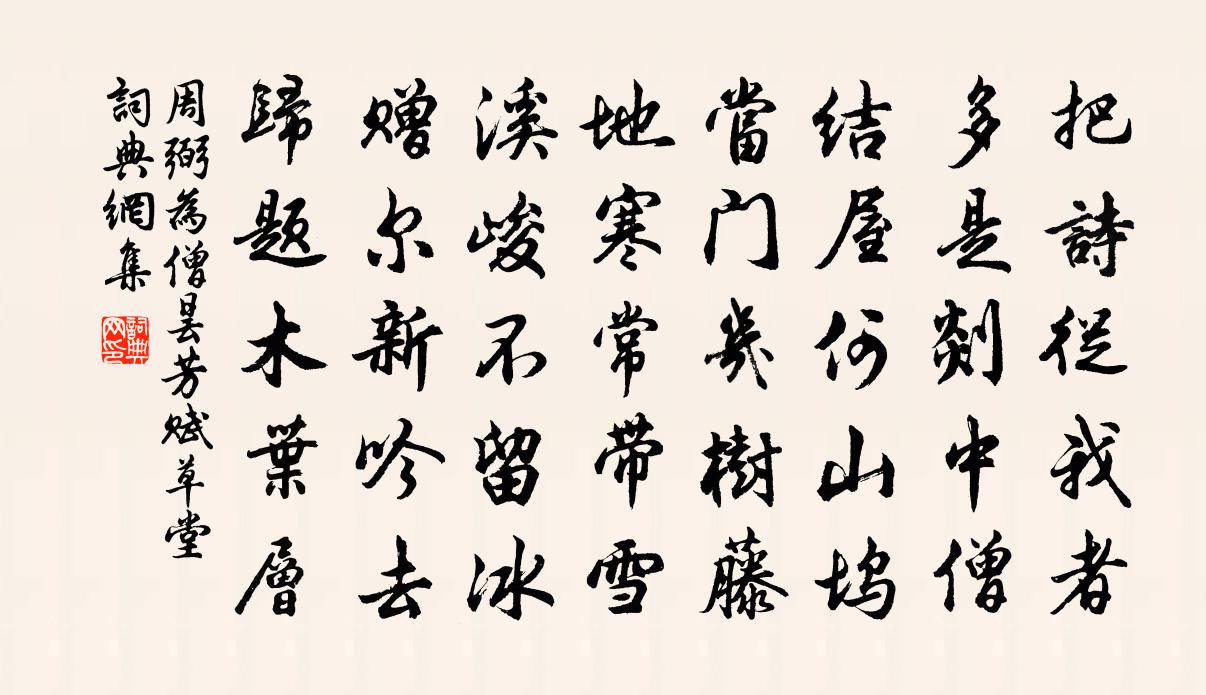 把詩從我者
多是剡中僧
结屋何山坞
當门幾樹藤
地寒常带雪
溪峻不留冰
赠尔新吟去
歸题木葉層
周弼為僧曇芳赋草堂
詞典網集
詞典网印